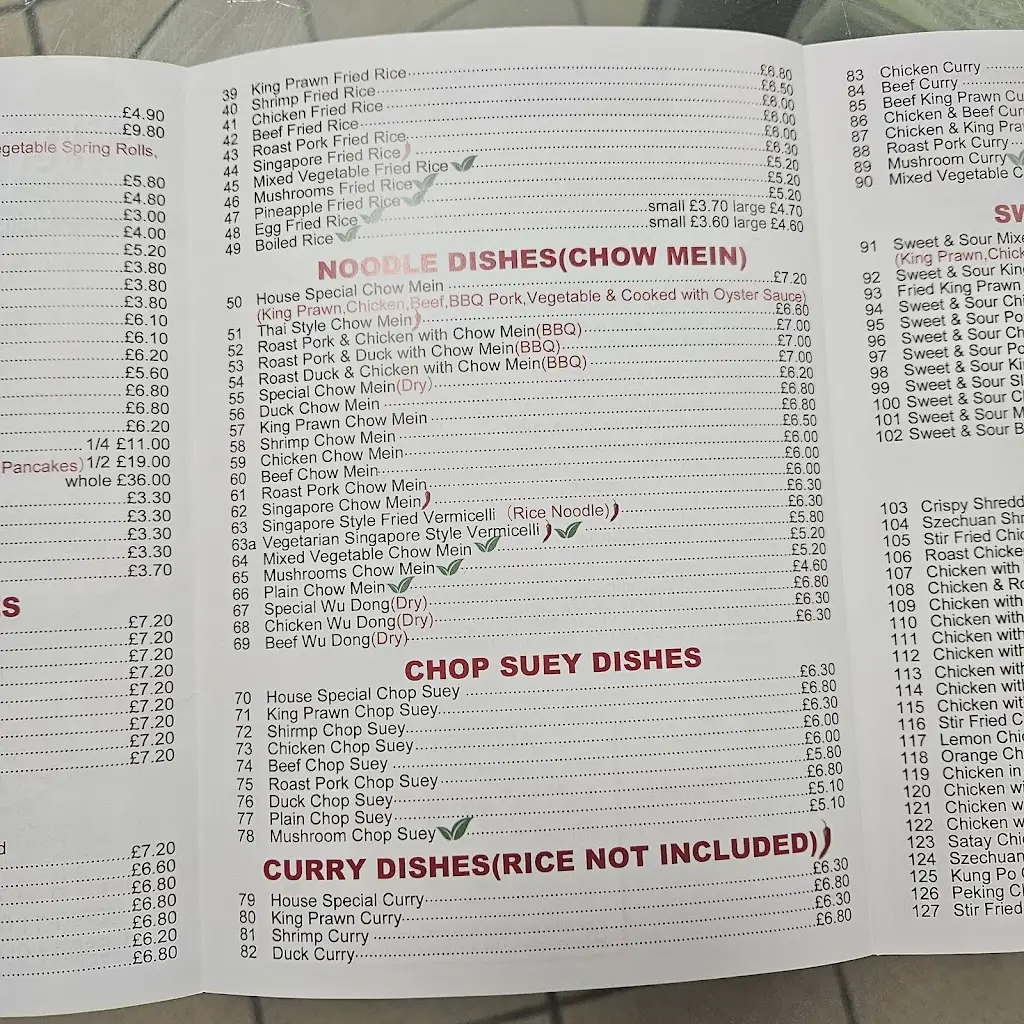 £4.90
£9.80
egetable Spring Rolls,
£5.80
£4.80
£3.00
£4.00
£5.20
£3.80
£3.80
£3.80
£6.10
£6.10
£6.20
£5.60
£6.80
£6.80
£6.20
1/4 £11.00
Pancakes) 1/2 £19.00
whole £36.00
£3.30
£3.30
£3.30
£3.30
£3.70
S
£7.20
£7.20
£7.20
£7.20
£7.20
£7.20
£7.20
£7.20
£7.20
d
£7.20
£6.60
£6.80
£6.80
£6.80
£6.20
£6.80
39 King Prawn Fried Rice £6.80
40 Shrimp Fried Rice £6.50
41 Chicken Fried Rice £6.00
42 Beef Fried Rice £6.00
43 Roast Pork Fried Rice £6.00
44 Singapore Fried Rice £6.30
45 Mixed Vegetable Fried Rice £5.20
46 Mushrooms Fried Rice £5.20
47 Pineapple Fried Rice £5.20
48 Egg Fried Rice small £3.70 large £4.70
49 Boiled Rice small £3.60 large £4.60
NOODLE DISHES(CHOW MEIN)
50 House Special Chow Mein £7.20
(King Prawn,Chicken,Beef,BBQ Pork,Vegetable & Cooked with Oyster Sauce)
51 Thai Style Chow Mein £6.60
52 Roast Pork & Chicken with Chow Mein(BBQ) £7.00
53 Roast Pork & Duck with Chow Mein(BBQ) £7.00
54 Roast Duck & Chicken with Chow Mein(BBQ) £7.00
55 Special Chow Mein(Dry) £6.20
56 Duck Chow Mein £6.80
57 King Prawn Chow Mein £6.80
58 Shrimp Chow Mein £6.50
59 Chicken Chow Mein £6.00
60 Beef Chow Mein £6.00
61 Roast Pork Chow Mein £6.00
62 Singapore Chow Mein £6.30
63 Singapore Style Fried Vermicelli (Rice Noodle) £6.30
63a Vegetarian Singapore Style Vermicelli £5.80
64 Mixed Vegetable Chow Mein £5.20
65 Mushrooms Chow Mein £5.20
66 Plain Chow Mein £4.60
67 Special Wu Dong(Dry) £6.80
68 Chicken Wu Dong(Dry) £6.30
69 Beef Wu Dong(Dry) £6.30
CHOP SUEY DISHES
70 House Special Chop Suey £6.30
71 King Prawn Chop Suey £6.80
72 Shirmp Chop Suey £6.30
73 Chicken Chop Suey £6.00
74 Beef Chop Suey £6.00
75 Roast Pork Chop Suey £5.80
76 Duck Chop Suey £6.80
77 Plain Chop Suey £5.10
78 Mushroom Chop Suey £5.10
CURRY DISHES(RICE NOT INCLUDED)
79 House Special Curry £6.30
80 King Prawn Curry £6.80
81 Shrimp Curry £6.30
82 Duck Curry £6.80
83 Chicken Curry
84 Beef Curry
85 Beef King Prawn Cu
86 Chicken & Beef Cur
87 Chicken & King Pra
88 Roast Pork Curry
89 Mushroom Curry
90 Mixed Vegetable C
SW
91 Sweet & Sour Mixe
(King Prawn,Chick
92 Sweet & Sour King
93 Fried King Prawn
94 Sweet & Sour Chi
95 Sweet & Sour Po
96 Sweet & Sour Ch
97 Sweet & Sour Po
98 Sweet & Sour Kin
99 Sweet & Sour Sl
100 Sweet & Sour Ch
101 Sweet & Sour M
102 Sweet & Sour B
103 Crispy Shredd
104 Szechuan Shr
105 Stir Fried Chic
106 Roast Chicke
107 Chicken with
108 Chicken & Ro
109 Chicken with
110 Chicken with
111 Chicken with
112 Chicken with
113 Chicken with
114 Chicken with
115 Chicken wit
116 Stir Fried C
117 Lemon Chic
118 Orange Ch
119 Chicken in
120 Chicken wi
121 Chicken w
122 Chicken w
123 Satay Chi
124 Szechuan
125 Kung Po C
126 Peking Ch
127 Stir Fried